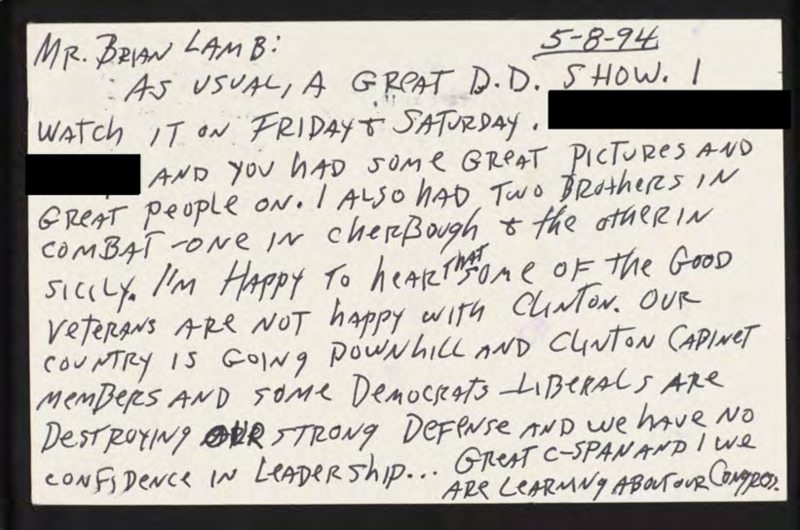 MR. BRIAN LAMB: 5-8-94
AS USUAL, A GREAT D.D. SHOW. I
WATCH IT ON FRIDAY & SATURDAY.
AND YOU HAD SOME GREAT PICTURES AND
GREAT PEOPLE ON. I ALSO HAD TWO BROTHERS IN
COMBAT - ONE IN CHERBOUGH & THE OTHER IN
SICILY. I'M HAPPY TO HEAR THAT SOME OF THE GOOD
VETERANS ARE NOT HAPPY WITH CLINTON. OUR
COUNTRY IS GOING DOWNHILL AND CLINTON CABINET
MEMBERS AND SOME DEMOCRATS - LIBERALS ARE
DESTROYING OUR STRONG DEFENSE AND WE HAVE NO
CONFIDENCE IN LEADERSHIP... GREAT C-SPAN AND I WE
ARE LEARNING ABOUT OUR CONGRESS.